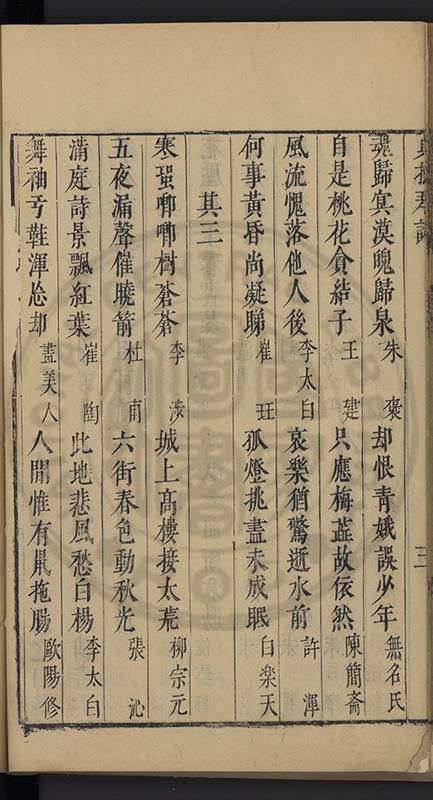 魂歸冥漠魄歸泉 朱褒 却恨青娥誤少年 無名氏
自是桃花貪結子 王建 只應梅蕋故依然 陳簡齋
風流愧落他人後 李太白 哀樂猶驚逝水前 許渾
何事黃昏尚凝睇 崔珏 孤燈挑盡未成眠 白樂天
其三
寒蛩唧唧樹蒼蒼 李涉 城上高樓接太荒 柳宗元
五夜漏聲催曉箭 杜甫 六街春色動秋光 張泌
滿庭詩景飄紅葉 崔陶 此地悲風愁白楊 李太白
舞袖弓鞋渾忘却 畫美人 人間惟有鼠拖腸 歐陽修